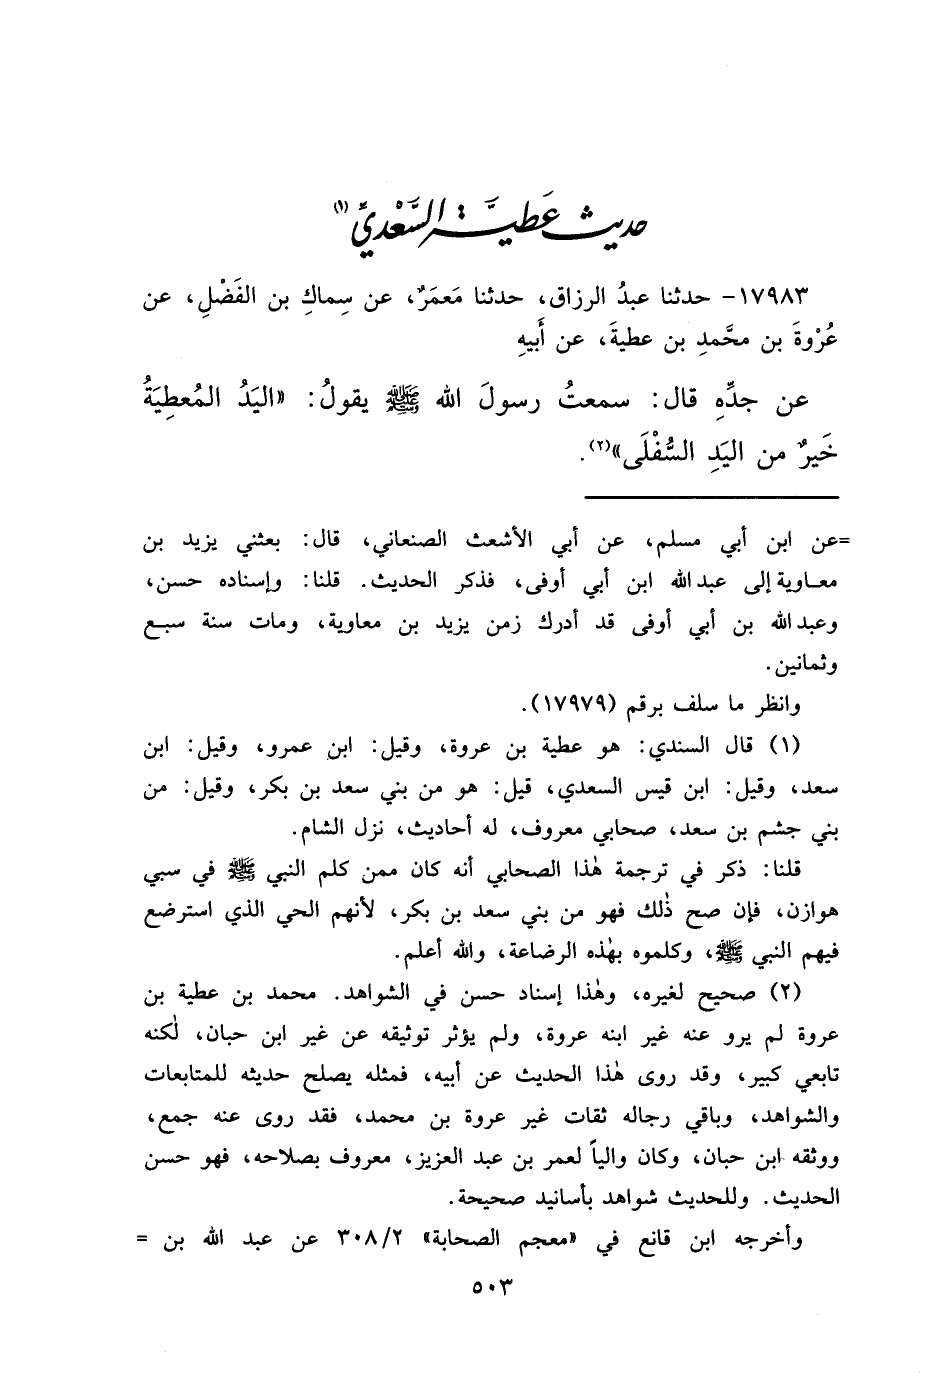 حديث عَطيَّة السَّعْديِّ(١)
١٧٩٨٣- حدثنا عبدُ الرزاق، حدثنا مَعمَرٌ، عن سِماكِ بن الفَضْلِ، عن
عُرْوةَ بن محَّمدِ بن عطيةَ، عن أَبيهِ
عن جدِّهِ قال: سمعتُ رسولَ الله ﷺ يقولُ: «اليَدُ المُعطِيَةُ
خَيرٌ من اليَدِ السُّفْلَى»(٢).
=عن ابن أبي مسلم، عن أبي الأشعث الصنعاني، قال: بعثني يزيد بن
معاوية إلى عبد الله ابن أبي أوفى، فذكر الحديث. قلنا: وإسناده حسن،
وعبد الله بن أبي أوفى قد أدرك زمن يزيد بن معاوية، ومات سنة سبع
وثمانين.
وانظر ما سلف برقم (١٧٩٧٩).
(١) قال السندي: هو عطية بن عروة، وقيل: ابن عمرو، وقيل: ابن
سعد، وقيل: ابن قيس السعدي، قيل: هو من بني سعد بن بكر، وقيل: من
بني جشم بن سعد، صحابي معروف، له أحاديث، نزل الشام.
قلنا: ذكر في ترجمة هٰذا الصحابي أنه كان ممن كلم النبي ﷺ في سبي
هوازن، فإن صح ذٰلك فهو من بني سعد بن بكر، لأنهم الحي الذي استرضع
فيهم النبي ﷺ، وكلموه بهٰذه الرضاعة، والله أعلم.
(٢) صحيح لغيره، وهٰذا إسناد حسن في الشواهد. محمد بن عطية بن
عروة لم يرو عنه غير ابنه عروة، ولم يؤثر توثيقه عن غير ابن حبان، لٰكنه
تابعي كبير، وقد روى هٰذا الحديث عن أبيه، فمثله يصلح حديثه للمتابعات
والشواهد، وباقي رجاله ثقات غير عروة بن محمد، فقد روى عنه جمع،
ووثقه ابن حبان، وكان والياً لعمر بن عبد العزيز، معروف بصلاحه، فهو حسن
الحديث. وللحديث شواهد بأسانيد صحيحة.
وأخرجه ابن قانع في «معجم الصحابة» ٣٠٨/٢ عن عبد الله بن =
٥٠٣